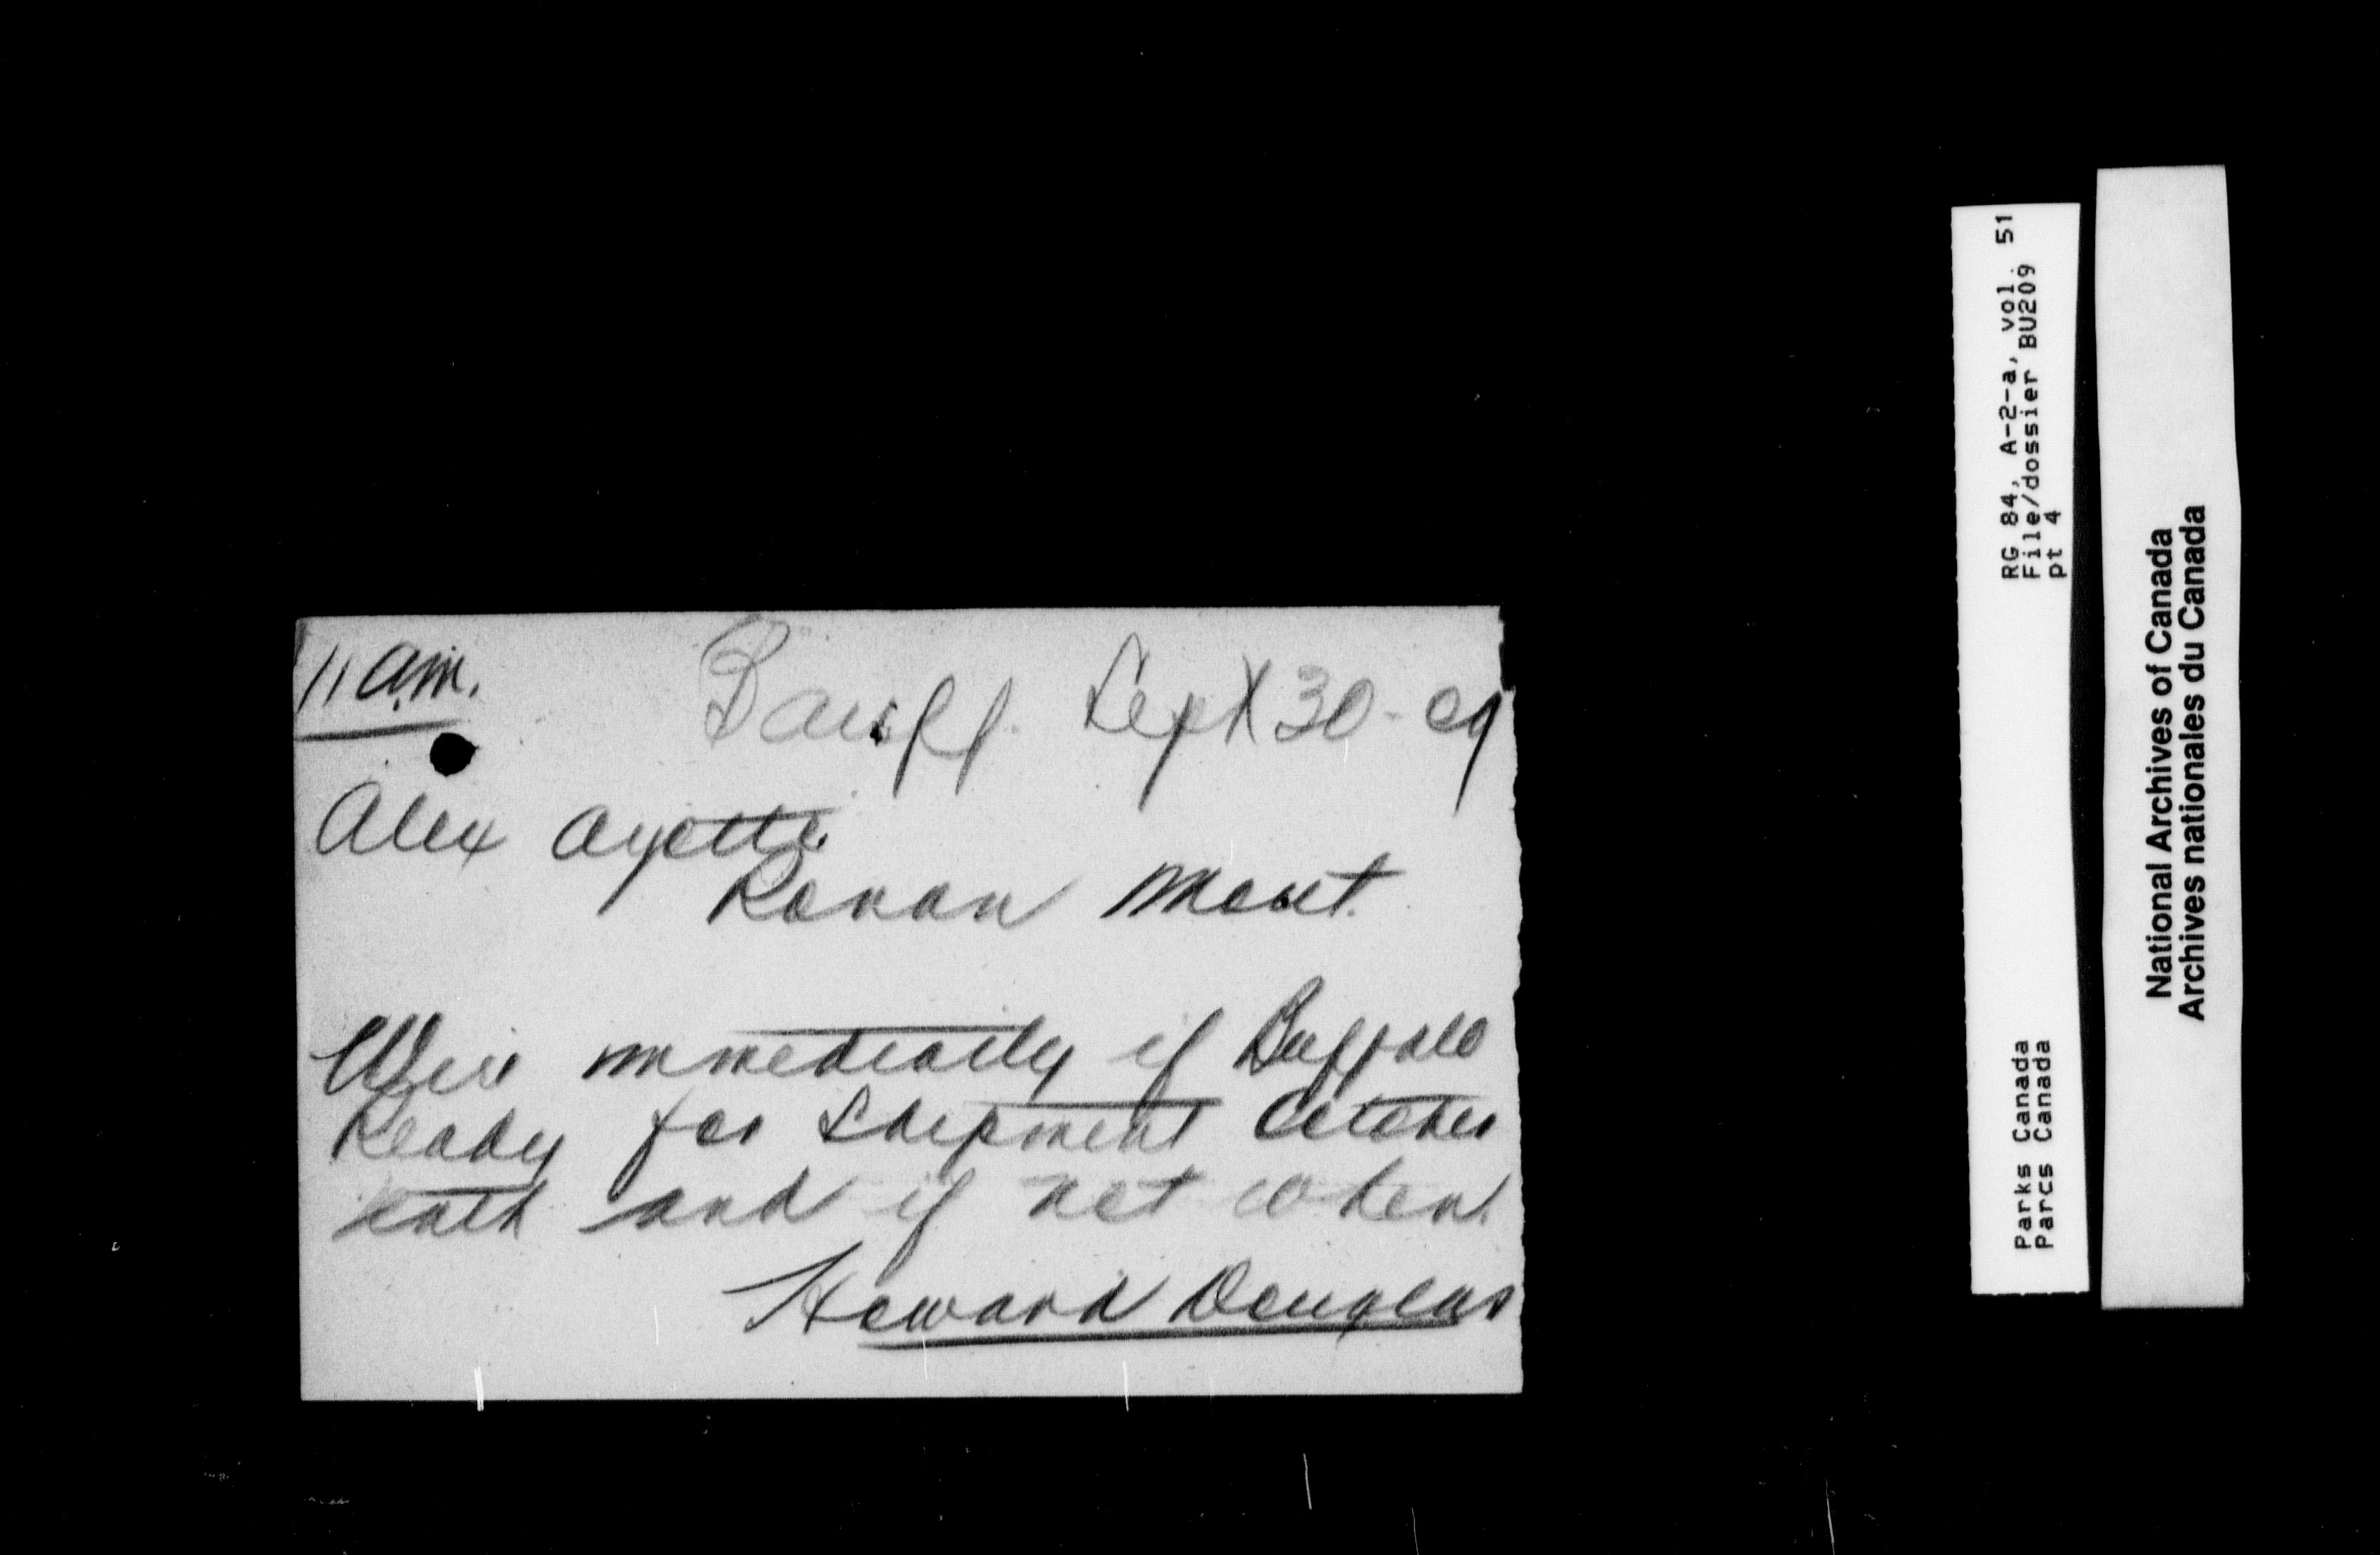 11 a.m.
Banff. Sept 30-09
Alex Ayotte.
Ronan Mont.
Wire immediatly if Buffalo
Ready for Shipment October
and if not when.
Howard Douglas
RG 84, A-2-a, vol. 51
File/dossier BU209
pt 4
Parks Canada
Parcs Canada
National Archives of Canada
Archives nationales du Canada